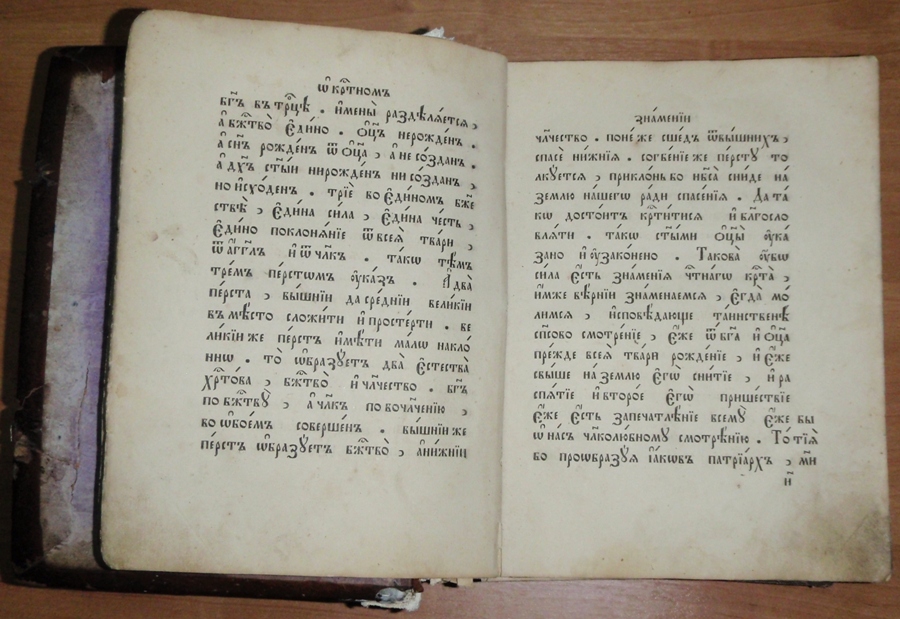 ѡ҆ кр҇тномъ
бг҃ъ въ тр҇цѣ . и҆мены̀ раздѣлѧ́етсѧ ,
а҆ бж҇тво̀ є҆ди́но . ѻ҆ц҃ъ нерожде́н .
а҆ сн҃ъ рожден ѿ ѻ҆ц҃а̀ , а҆ не со́здан .
а҆ дх҃ъ ст҃ы́и нирожде́н ни со́здан ,
но и҆схо́ден . трїѐ во є҆ди́номъ бж҃е
ствѣ̀ , є҆ди́на сила , є҆ди́на че́сть ,
є҆ди́но поклонѧ́нїе ѿ всеѧ̀ тва́ри ,
ѿ а҆́гг҃лъ и҆ ѿ чл҃къ . та́кѡ тѣ́мъ
тре́мъ перстѡмъ ᲂу҆ка́зъ . А҆ два̀
пе́рста , вы́шнїи да сре́днїи вели́кїи
въ мѣ́сто сложи́ти и҆ просте́рти . ве
ли́кїи же пе́рстъ и҆мѣ́ти ма́лѡ накло́
ниѡ . то̀ ѡ҆бразꙋ́етъ два̀ є҆стества̀
хр҇то́ва , бж҇тво̀ и҆ чл҃чество . бг҃ъ
по бж҇твꙋ̀ , а҆ чл҃къ по вочл҃че́нїю ,
во ѻ҆бо́емъ соверше́н . вы́шнїи же
пе́рстъ ѡ҆бразꙋ́етъ бж҇тво̀ , а҆ ни́жнїи
зна́менїи
чл҃чество . поне́же сше́дъ ѿ вы́шнихъ ,
спасѐ ни́жнїѧ . согбе́нїе же персту то
лкꙋ́етсѧ , прикло́нь бо нб҃са̀ сни́де на
зе́млю на́шегѡ ра́ди спасе́нїѧ . Да та́
кѡ досто́итъ кр҇ти́тисѧ и҆ бл҃госло
влѧ́ти . та́кѡ ст҃ы́ми ѻ҆ц҃ы̀ ᲂу҆ка́
зано и҆ ᲂу҆зако́нено . Такова̀ ᲂу҆́бѡ
сила є҆́сть зна́менїѧ чт҇на́гѡ кр҇та̀ ,
и҆́мже вѣ́рнїи зна́менаемсѧ , є҆гда̀ мо́
лимсѧ , и҆сповѣ́дающе та́инственѣ
сп҇со́во смотре́нїе , є҆́же ѿ бг҃а и҆ ѻ҆ц҃а̀
пре́жде всеѧ̀ тва́ри рожде́нїе , и҆ є҆́же
свы́ше на зе́млю є҆гѡ̀ сни́тїе , и҆ ра
спѧ́тїе и҆ второ́е є҆гѡ̀ прише́ствїе
є҆́же є҆́сть запечатлѣ́нїе всемꙋ̀ є҆́же бы
ѡ҆ на́съ чл҃колю́бному смотре́нїю . То тїѧ̀
бо проѡбразꙋ́ѧ і҆а́кѡвъ патрїа́рхъ ,